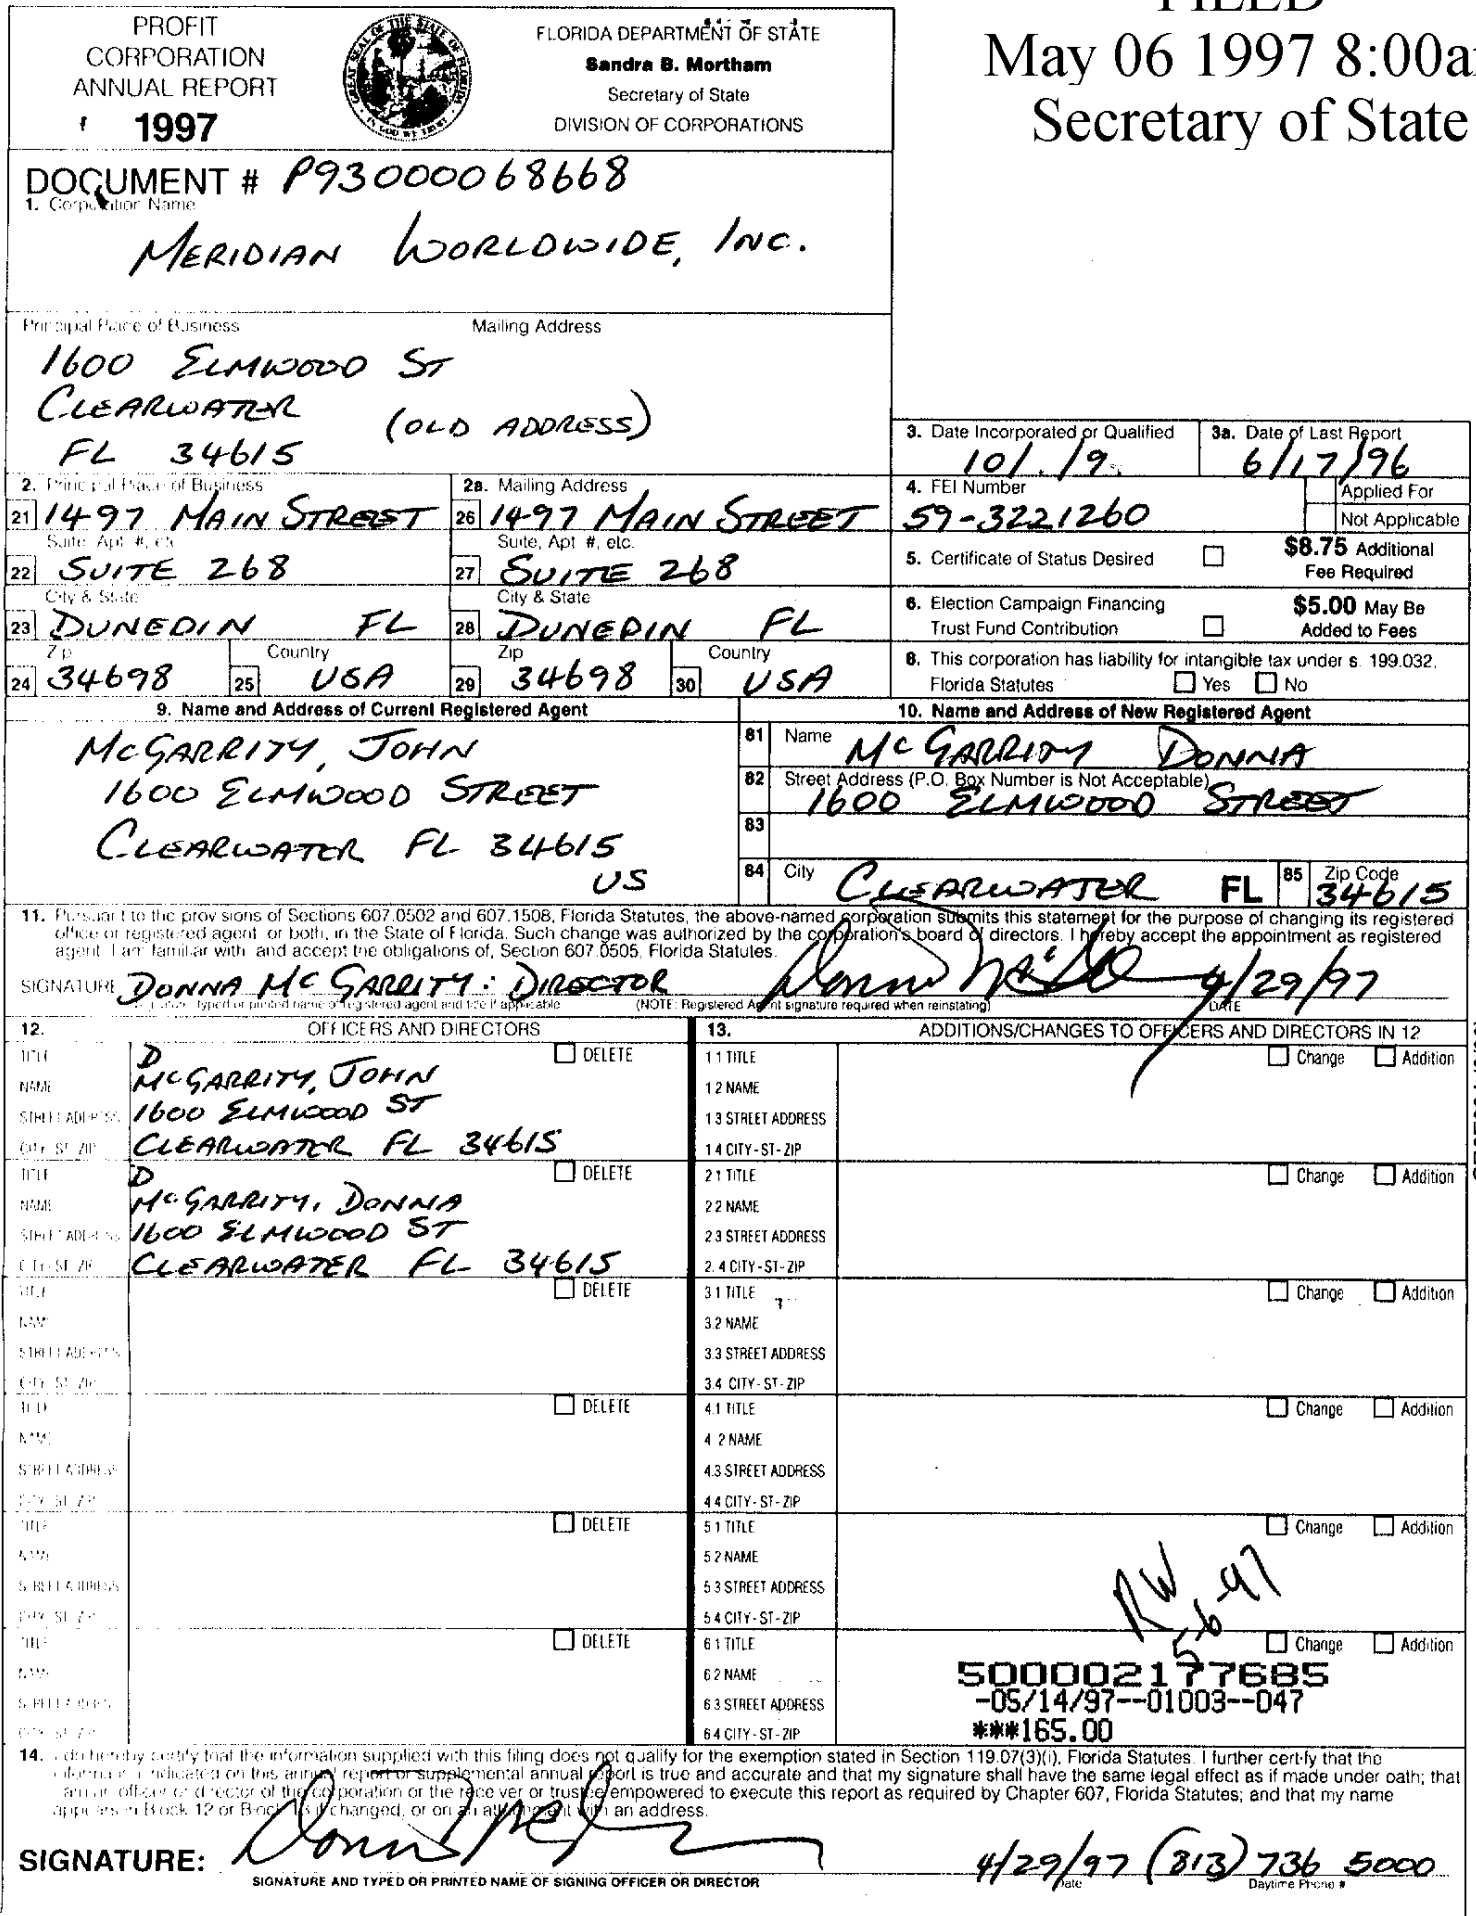 PROFIT
CORPORATION
ANNUAL REPORT
1997
FLORIDA DEPARTMENT OF STATE
Sandra B. Mortham
Secretary of State
DIVISION OF CORPORATIONS
FILED
May 06 1997 8:00a
Secretary of State
DOCUMENT # P93000068668
1. Corporation Name
MERIDIAN WORLDWIDE, INC.
Principal Place of Business Mailing Address
1600 ELMWOOD ST
CLEARWATER
(OLD ADDRESS)
FL 34615
3. Date Incorporated or Qualified
10/ /9
3a. Date of Last Report
6/17/96
2. Principal Place of Business
21 1497 MAIN STREET
2a. Mailing Address
26 1497 MAIN STREET
4. FEI Number
59-3221260
Applied For
Not Applicable
Suite, Apt. #, etc.
22 SUITE 268
Suite, Apt. #, etc.
27 SUITE 268
5. Certificate of Status Desired
$8.75 Additional
Fee Required
City & State
23 DUNEDIN FL
City & State
28 DUNEDIN FL
6. Election Campaign Financing
Trust Fund Contribution
$5.00 May Be
Added to Fees
Zip Country
24 34698 25 USA
Zip Country
29 34698 30 USA
8. This corporation has liability for intangible tax under s. 199.032,
Florida Statutes Yes No
9. Name and Address of Current Registered Agent
MCGARRITY, JOHN
1600 ELMWOOD STREET
CLEARWATER FL 34615
US
10. Name and Address of New Registered Agent
81 Name MCGARRITY DONNA
82 Street Address (P.O. Box Number is Not Acceptable)
1600 ELMWOOD STREET
83
84 City CLEARWATER FL 85 Zip Code 34615
11. Pursuant to the provisions of Sections 607.0502 and 607.1508, Florida Statutes, the above-named corporation submits this statement for the purpose of changing its registered
office or registered agent, or both, in the State of Florida. Such change was authorized by the corporation's board of directors. I hereby accept the appointment as registered
agent. I am familiar with, and accept the obligations of, Section 607.0505, Florida Statutes.
SIGNATURE DONNA MCGARRITY: DIRECTOR 4/29/97
typed or printed name of registered agent and title if applicable (NOTE: Registered Agent signature required when reinstating) DATE
12. OFFICERS AND DIRECTORS
TITLE D DELETE
NAME MCGARRITY, JOHN
STREET ADDRESS 1600 ELMWOOD ST
CITY-ST-ZIP CLEARWATER FL 34615
TITLE D DELETE
NAME MCGARRITY, DONNA
STREET ADDRESS 1600 ELMWOOD ST
CITY-ST-ZIP CLEARWATER FL 34615
TITLE DELETE
NAME
STREET ADDRESS
CITY-ST-ZIP
TITLE DELETE
NAME
STREET ADDRESS
CITY-ST-ZIP
TITLE DELETE
NAME
STREET ADDRESS
CITY-ST-ZIP
TITLE DELETE
NAME
STREET ADDRESS
CITY-ST-ZIP
13. ADDITIONS/CHANGES TO OFFICERS AND DIRECTORS IN 12
1 1 TITLE Change Addition
1 2 NAME
1 3 STREET ADDRESS
1 4 CITY-ST-ZIP
2 1 TITLE Change Addition
2 2 NAME
2 3 STREET ADDRESS
2.4 CITY-ST-ZIP
3 1 TITLE Change Addition
3.2 NAME
3.3 STREET ADDRESS
3.4 CITY-ST-ZIP
4.1 TITLE Change Addition
4 2 NAME
4.3 STREET ADDRESS
4 4 CITY-ST-ZIP
5 1 TITLE Change Addition
5 2 NAME
5 3 STREET ADDRESS
5 4 CITY-ST-ZIP
RW
5-6-97
6 1 TITLE Change Addition
6 2 NAME
6 3 STREET ADDRESS
6 4 CITY-ST-ZIP
500002177685
-05/14/97--01003--047
***165.00
14. I do hereby certify that the information supplied with this filing does not qualify for the exemption stated in Section 119.07(3)(i), Florida Statutes. I further certify that the
information indicated on this annual report or supplemental annual report is true and accurate and that my signature shall have the same legal effect as if made under oath; that
I am an officer or director of the corporation or the receiver or trustee empowered to execute this report as required by Chapter 607, Florida Statutes; and that my name
appears in Block 12 or Block 13 if changed, or on an attachment with an address.
SIGNATURE: 4/29/97 (813) 736 5000
SIGNATURE AND TYPED OR PRINTED NAME OF SIGNING OFFICER OR DIRECTOR Date Daytime Phone #